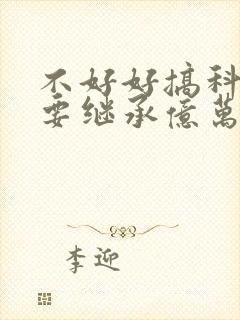 不好好搞科
要继承億萬
李迎